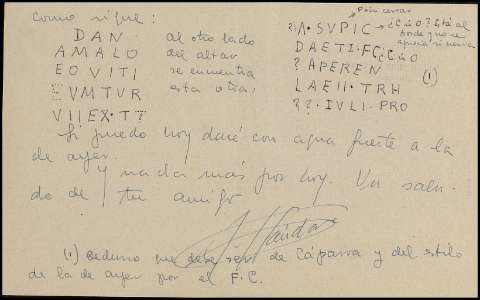 como sigue:
DAN
AMALO
EO VITI
EVMTVR
VIIEX·TT
al otro lado
del altar
se encuentra
esta otra:
?Λ·SVPIC
DAETI·FC ¿C ú O
? APEREN
LAEII·TRH
??·IVLI·PRO
(1)
Si puedo hoy daré con agua fuerte a la
de ayer.
Y nada más por hoy. Un salu-
do de tu amigo
(1) que debe ser de Cáparra y del estilo
de la de ayer por el F.C.